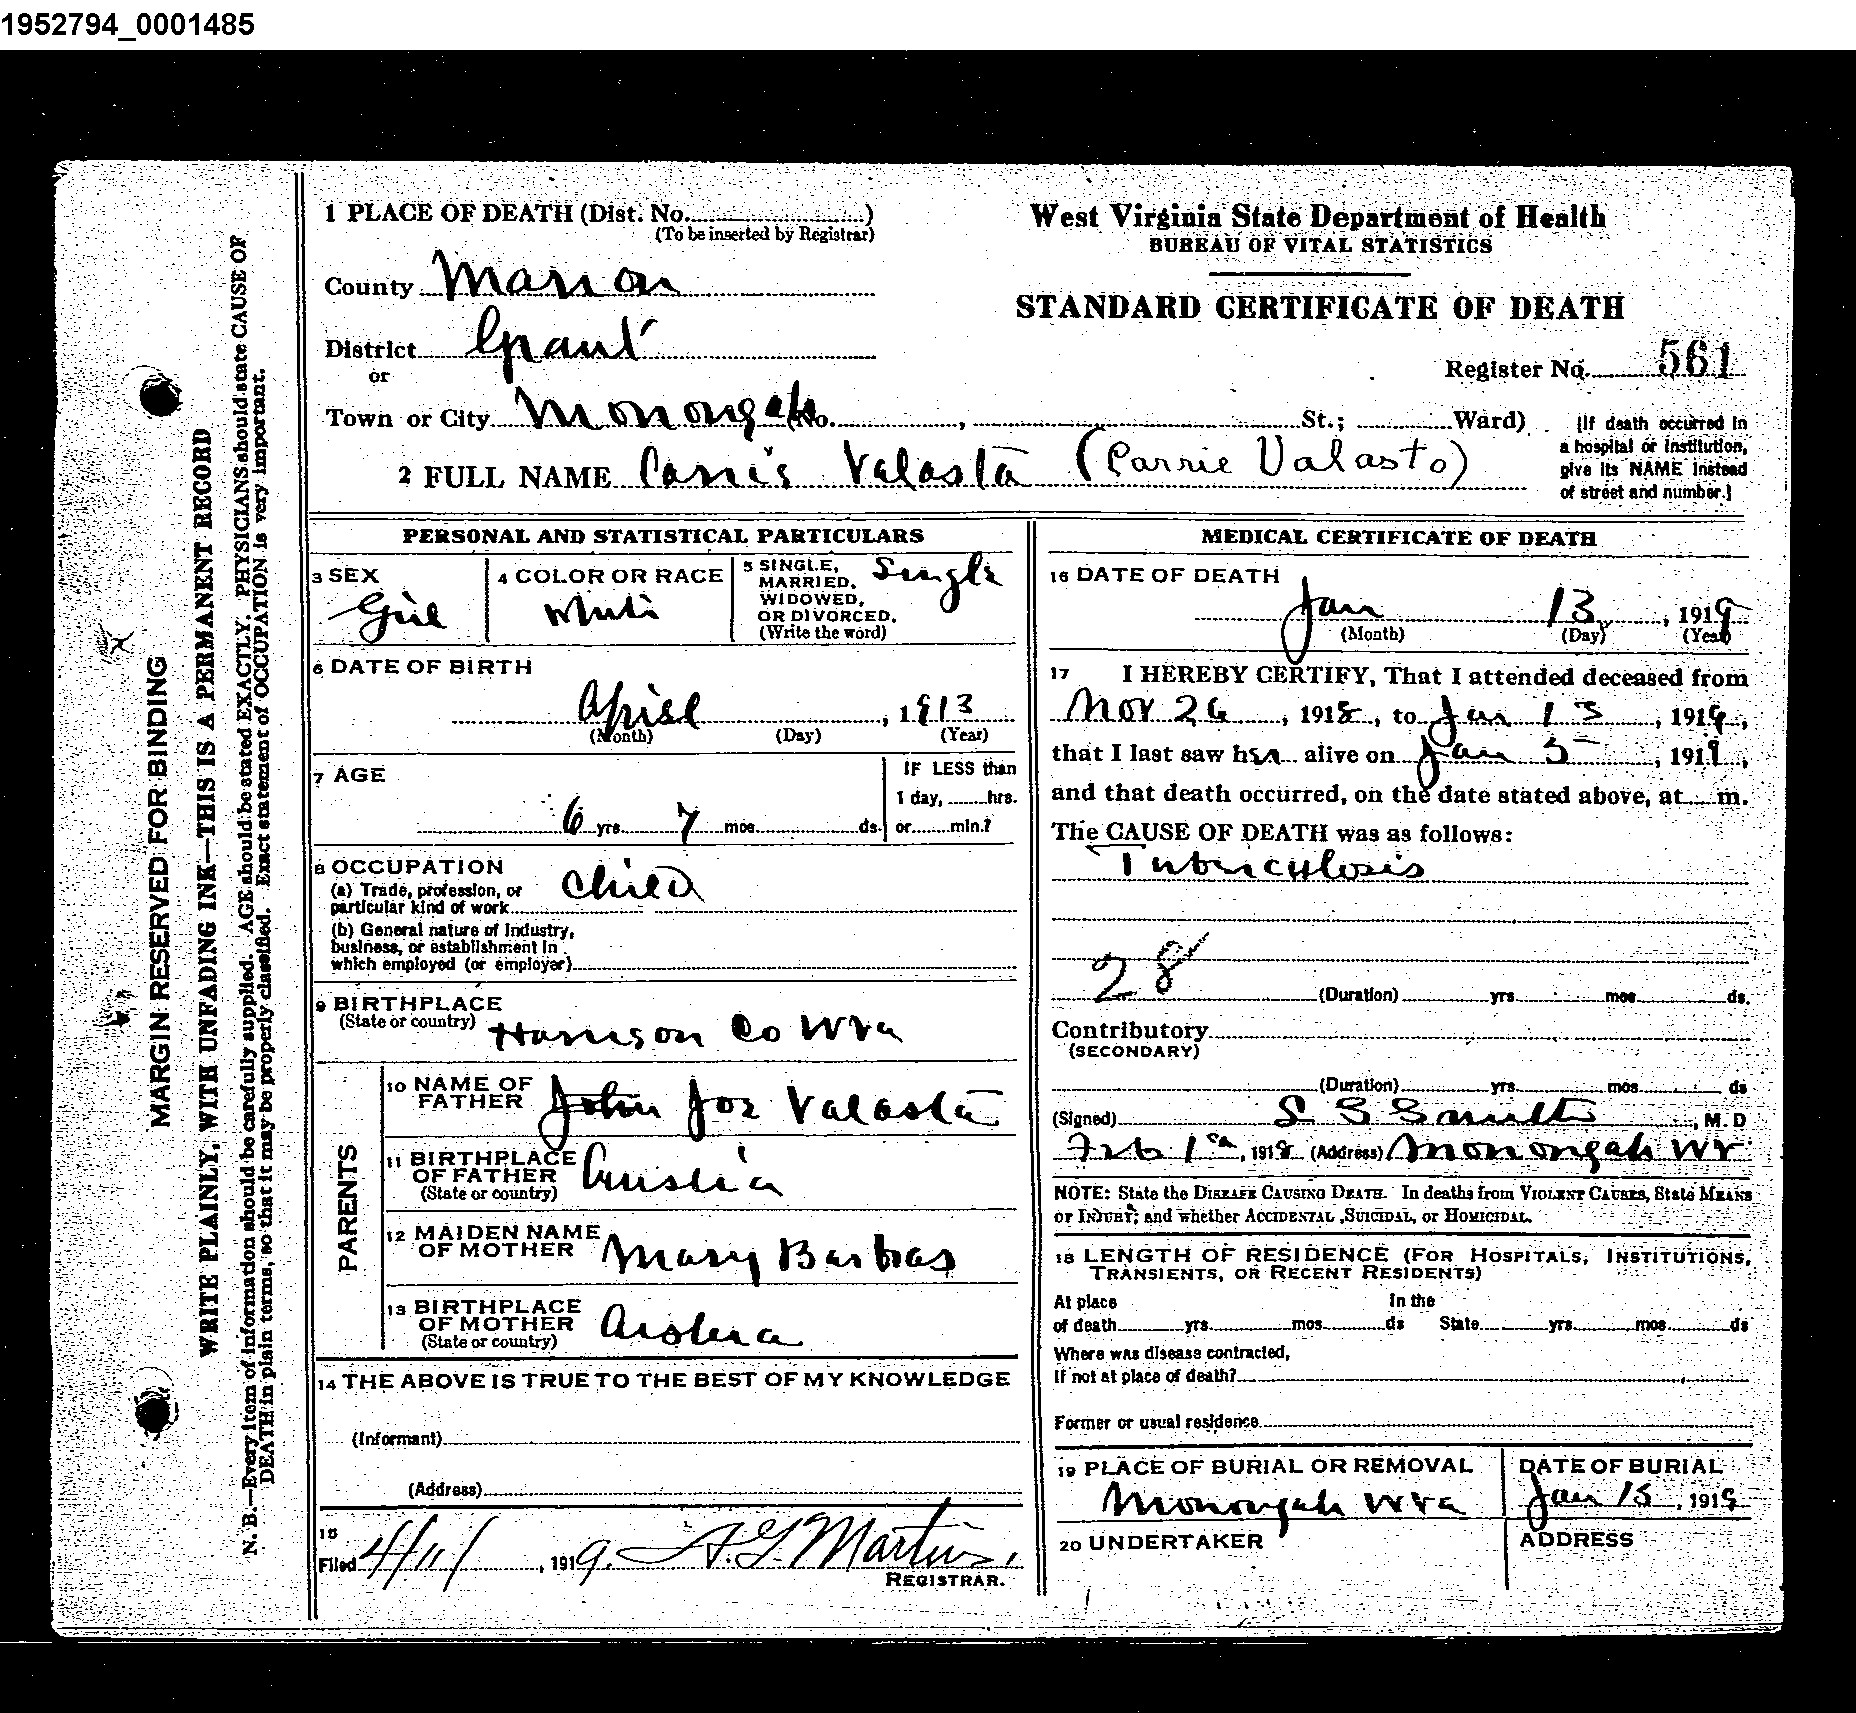 1952794_0001485
1 PLACE OF DEATH (Dist. No. )
(To be inserted by Registrar)
County Marion
District Grant
or
Town or City Monongah (No. , St.; Ward)
West Virginia State Department of Health
BUREAU OF VITAL STATISTICS
STANDARD CERTIFICATE OF DEATH
Register No. 561
[If death occurred in
a hospital or institution,
give its NAME instead
of street and number.]
2 FULL NAME Carrie Valasta (Carrie Valasto)
PERSONAL AND STATISTICAL PARTICULARS
3 SEX
Girl
4 COLOR OR RACE
White
5 SINGLE,
MARRIED,
WIDOWED,
OR DIVORCED.
(Write the word)
Single
6 DATE OF BIRTH
April , 1913
(Month) (Day) (Year)
7 AGE
6 yrs. 7 mos. ds.
IF LESS than
1 day, hrs.
or min.?
8 OCCUPATION
(a) Trade, profession, or
particular kind of work Child
(b) General nature of Industry,
business, or establishment in
which employed (or employer)
9 BIRTHPLACE
(State or country) Harrison Co W Va
PARENTS
10 NAME OF
FATHER John Joe Valasta
11 BIRTHPLACE
OF FATHER
(State or country) Austria
12 MAIDEN NAME
OF MOTHER Mary Barbas
13 BIRTHPLACE
OF MOTHER
(State or country)
14 THE ABOVE IS TRUE TO THE BEST OF MY KNOWLEDGE
(Informant)
(Address)
15
Filed 4/11/ , 1919. A.G. Martin,
REGISTRAR.
MEDICAL CERTIFICATE OF DEATH
16 DATE OF DEATH
Jan 13, , 1919
(Month) (Day) (Year)
17 I HEREBY CERTIFY, That I attended deceased from
Nov 26 , 1918 , to Jan 13 , 1919 ,
that I last saw her alive on Jan 5 , 1919 ,
and that death occurred, on the date stated above, at m.
The CAUSE OF DEATH was as follows:
Tuberculosis
28
(Duration) yrs. mos. ds.
Contributory
(SECONDARY)
(Duration) yrs. mos. ds
(Signed) , M. D
Feb 1 , 1918 (Address) Monongah W V
NOTE: State the DISEASE CAUSING DEATH. In deaths from VIOLENT CAUSES, State MEANS
OF INJURY; and whether ACCIDENTAL ,SUICIDAL, or HOMICIDAL.
18 LENGTH OF RESIDENCE (FOR HOSPITALS, INSTITUTIONS,
TRANSIENTS, OR RECENT RESIDENTS)
At place In the
of death yrs. mos. ds State yrs. mos. ds
Where was disease contracted,
If not at place of death?
Former or usual residence
19 PLACE OF BURIAL OR REMOVAL
Monongah W Va
DATE OF BURIAL
Jan 15 , 1919
20 UNDERTAKER
ADDRESS
MARGIN RESERVED FOR BINDING
WRITE PLAINLY, WITH UNFADING INK—THIS IS A PERMANENT RECORD
N. B.—Every item of information should be carefully supplied. AGE should be stated EXACTLY. PHYSICIANS should state CAUSE OF
DEATH in plain terms, so that it may be properly classified. Exact statement of OCCUPATION is very important.